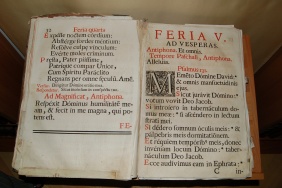 Feria quarta
Expelle noctem cordium:
Absterge sordes mentium:
Resolve culpæ vinculum:
Everte moles criminum.
Præsta, Pater piissime,
Patrique compar Unice,
Cum Spiritu Paraclito
Regnans per omne sæculũ. Amẽ.
Ad Magnificat, Antiphona.
Respexit Dominus humilitatẽ me-
am, & fecit in me magna, qui po-
tens est.
FE-
FERIA V.
AD VESPERAS.
Antiphona. Et omnis
Tempore Paschali, Antiphona.
Alleluia.
Psalmus 131.
Memẽto Domine David:*
& omnis mansuetudinis
ejus.
Sicut juravit Domino:*
votum vovit Deo Jacob.
Si introiero in tabernáculum do-
mus meæ: * si ascendero in lectum
strati mei.
Si dedero somnum oculis meis: * &
palpebris meis dormitationem.
Et requiem temporib9 meis: * donec
inveniam locum Domino: * taber-
naculum Deo Jacob.
Ecce audivimus eam in Ephrata: *